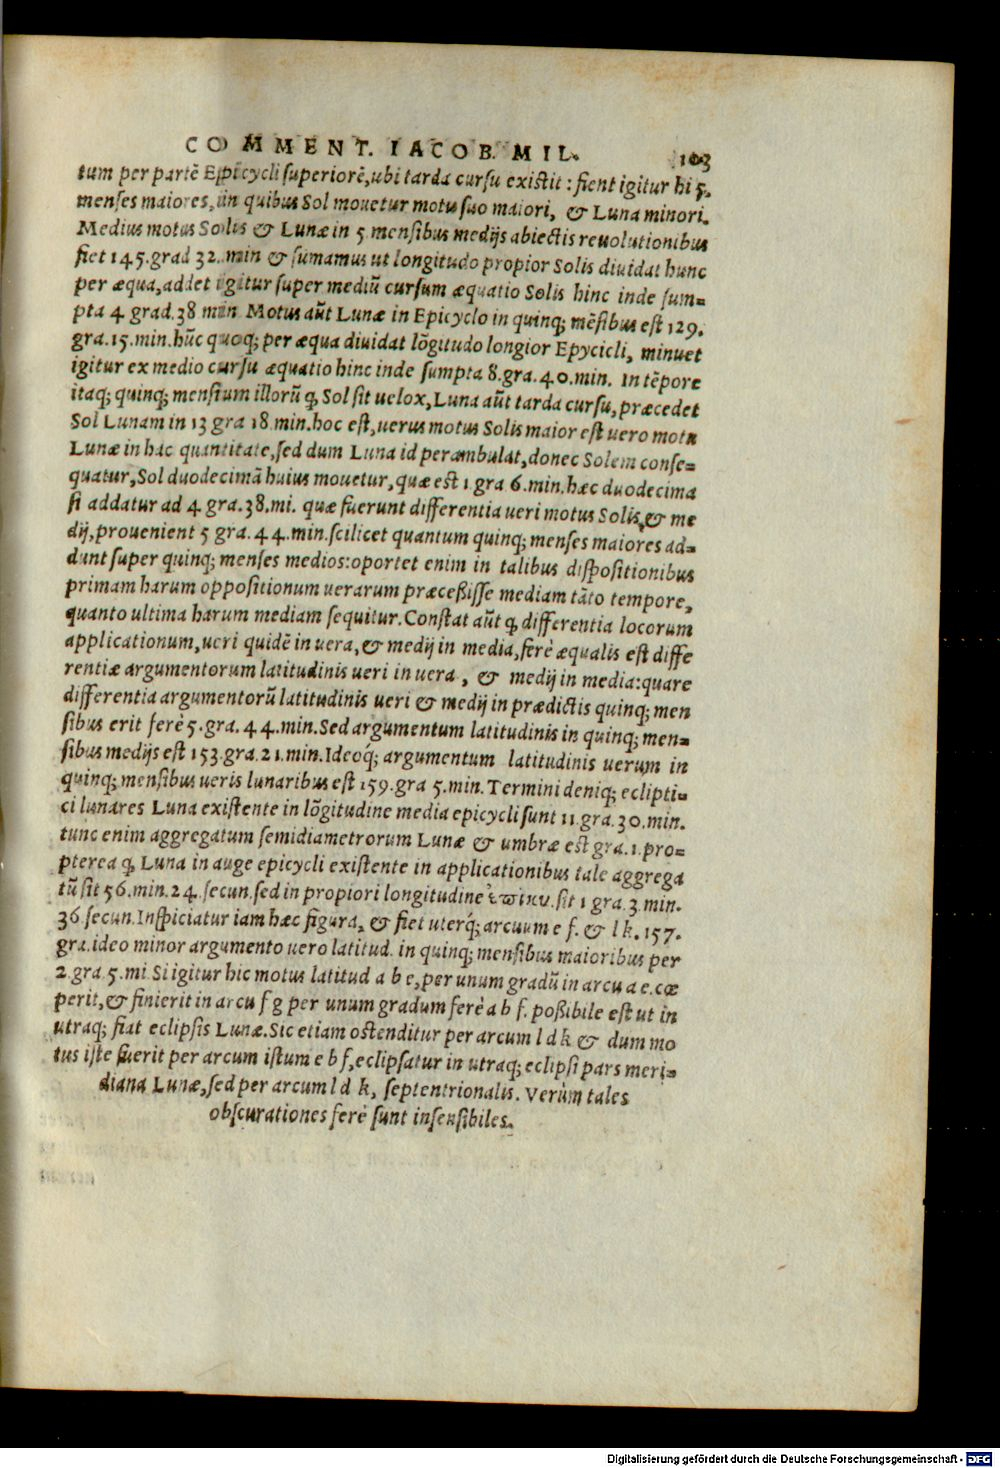 COMMENT. IACOB. MIL. 103
tum per partē Epicycli superiorē, ubi tarda cursu existit : fient igitur hi 5.
menses maiores, in quibus Sol mouetur motu suo maiori, & Luna minori.
Medius motus Solis & Lunæ in 5 mensibus medijs abiectis reuolutionibus
fiet 145. grad 32. min & sumamus ut longitudo propior Solis diuidat hunc
per æqua, addet igitur super mediū cursum æquatio Solis hinc inde sum=
pta 4 grad. 38 min. Motus aūt Lunæ in Epicyclo in quinq; mēsibus est 129.
gra. 15. min. hūc quoq; per æqua diuidat lōgitudo longior Epycicli, minuet
igitur ex medio cursu æquatio hinc inde sumpta 8. gra. 40. min. In tēpore
itaq; quinq; mensium illorū ꝙ Sol sit uelox, Luna aūt tarda cursu, præcedet
Sol Lunam in 13 gra 18. min. hoc est, uerus motus Solis maior est uero motu
Lunæ in hac quantitate, sed dum Luna id perambulat, donec Solem conse=
quatur, Sol duodecimā huius mouetur, quæ est 1. gra 6. min. hæc duodecima
si addatur ad 4 gra. 38. mi. quæ fuerunt differentia ueri motus Solis, & me
dij, prouenient 5 gra. 44. min. scilicet quantum quinq; menses maiores ad=
dunt super quinq; menses medios: oportet enim in talibus dispositionibus
primam harum oppositionum uerarum præceßisse mediam tāto tempore,
quanto ultima harum mediam sequitur. Constat aūt ꝙ differentia locorum
applicationum, ueri quidē in uera, & medij in media, ferè æqualis est diffe
rentiæ argumentorum latitudinis ueri in uera, & medij in media: quare
differentia argumentorū latitudinis ueri & medij in prædictis quinq; men
sibus erit ferè 5. gra. 44. min. Sed argumentum latitudinis in quinq; men=
sibus medijs est 153. gra. 21. min. Ideoq́; argumentum latitudinis uerum in
quinq; mensibus ueris lunaribus est 159. gra 5. min. Termini deniq; eclipti=
ci lunares Luna existente in lōgitudine media epicycli sunt 11. gra. 30. min.
tunc enim aggregatum semidiametrorum Lunæ & umbræ est gra. 1. pro=
pterea ꝙ Luna in auge epicycli existente in applicationibus tale aggrega
tū sit 56. min. 24. secun. sed in propiori longitudine ἐπικυ. sit 1 gra. 3. min.
36. secun. Inspiciatur iam hæc figura, & fiet uterq́; arcuum e f. & l k. 157.
gra. ideo minor argumento uero latitud. in quinq; mensibus maioribus per
2. gra. 5. mi. Si igitur hic motus latitud a b e, per unum gradū in arcu a e. cœ
perit, & finierit in arcu f g per unum gradum ferè a b f. poßibile est ut in
utraq; fiat eclipsis Lunæ. Sic etiam ostenditur per arcum l d k & dum mo
tus iste fuerit per arcum istum e b f, eclipsatur in utraq; eclipsi pars meri=
diana Lunæ, sed per arcum l d k, septentrionalis. Verùm tales
obscurationes ferè sunt insensibiles.
Digitalisierung gefördert durch die Deutsche Forschungsgemeinschaft - DFG